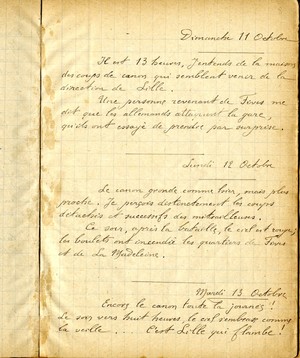 Dimanche 11 Octobre
Il est 13 heures, J'entends de la maison
des coups de canon qui semblent venir de la
direction de Lille.
Une personne revenant de Fives me
dit que les allemands attaquent la gare,
qu'ils ont essayé de prendre par surprise.
Lundi 12 Octobre
Le canon gronde comme hier, mais plus
proche. Je perçois distinctement les coups
détachés et successifs des
Ce soir, après la bataille, le ciel est rouge;
les boulets ont incendié les quartiers de Fives
et de La Madeleine.
Mardi 13 Octobre
Encore le canon toute la journée!
Le soir vers huit heures, le ciel comme
la veille.... C'est Lille qui flambe!